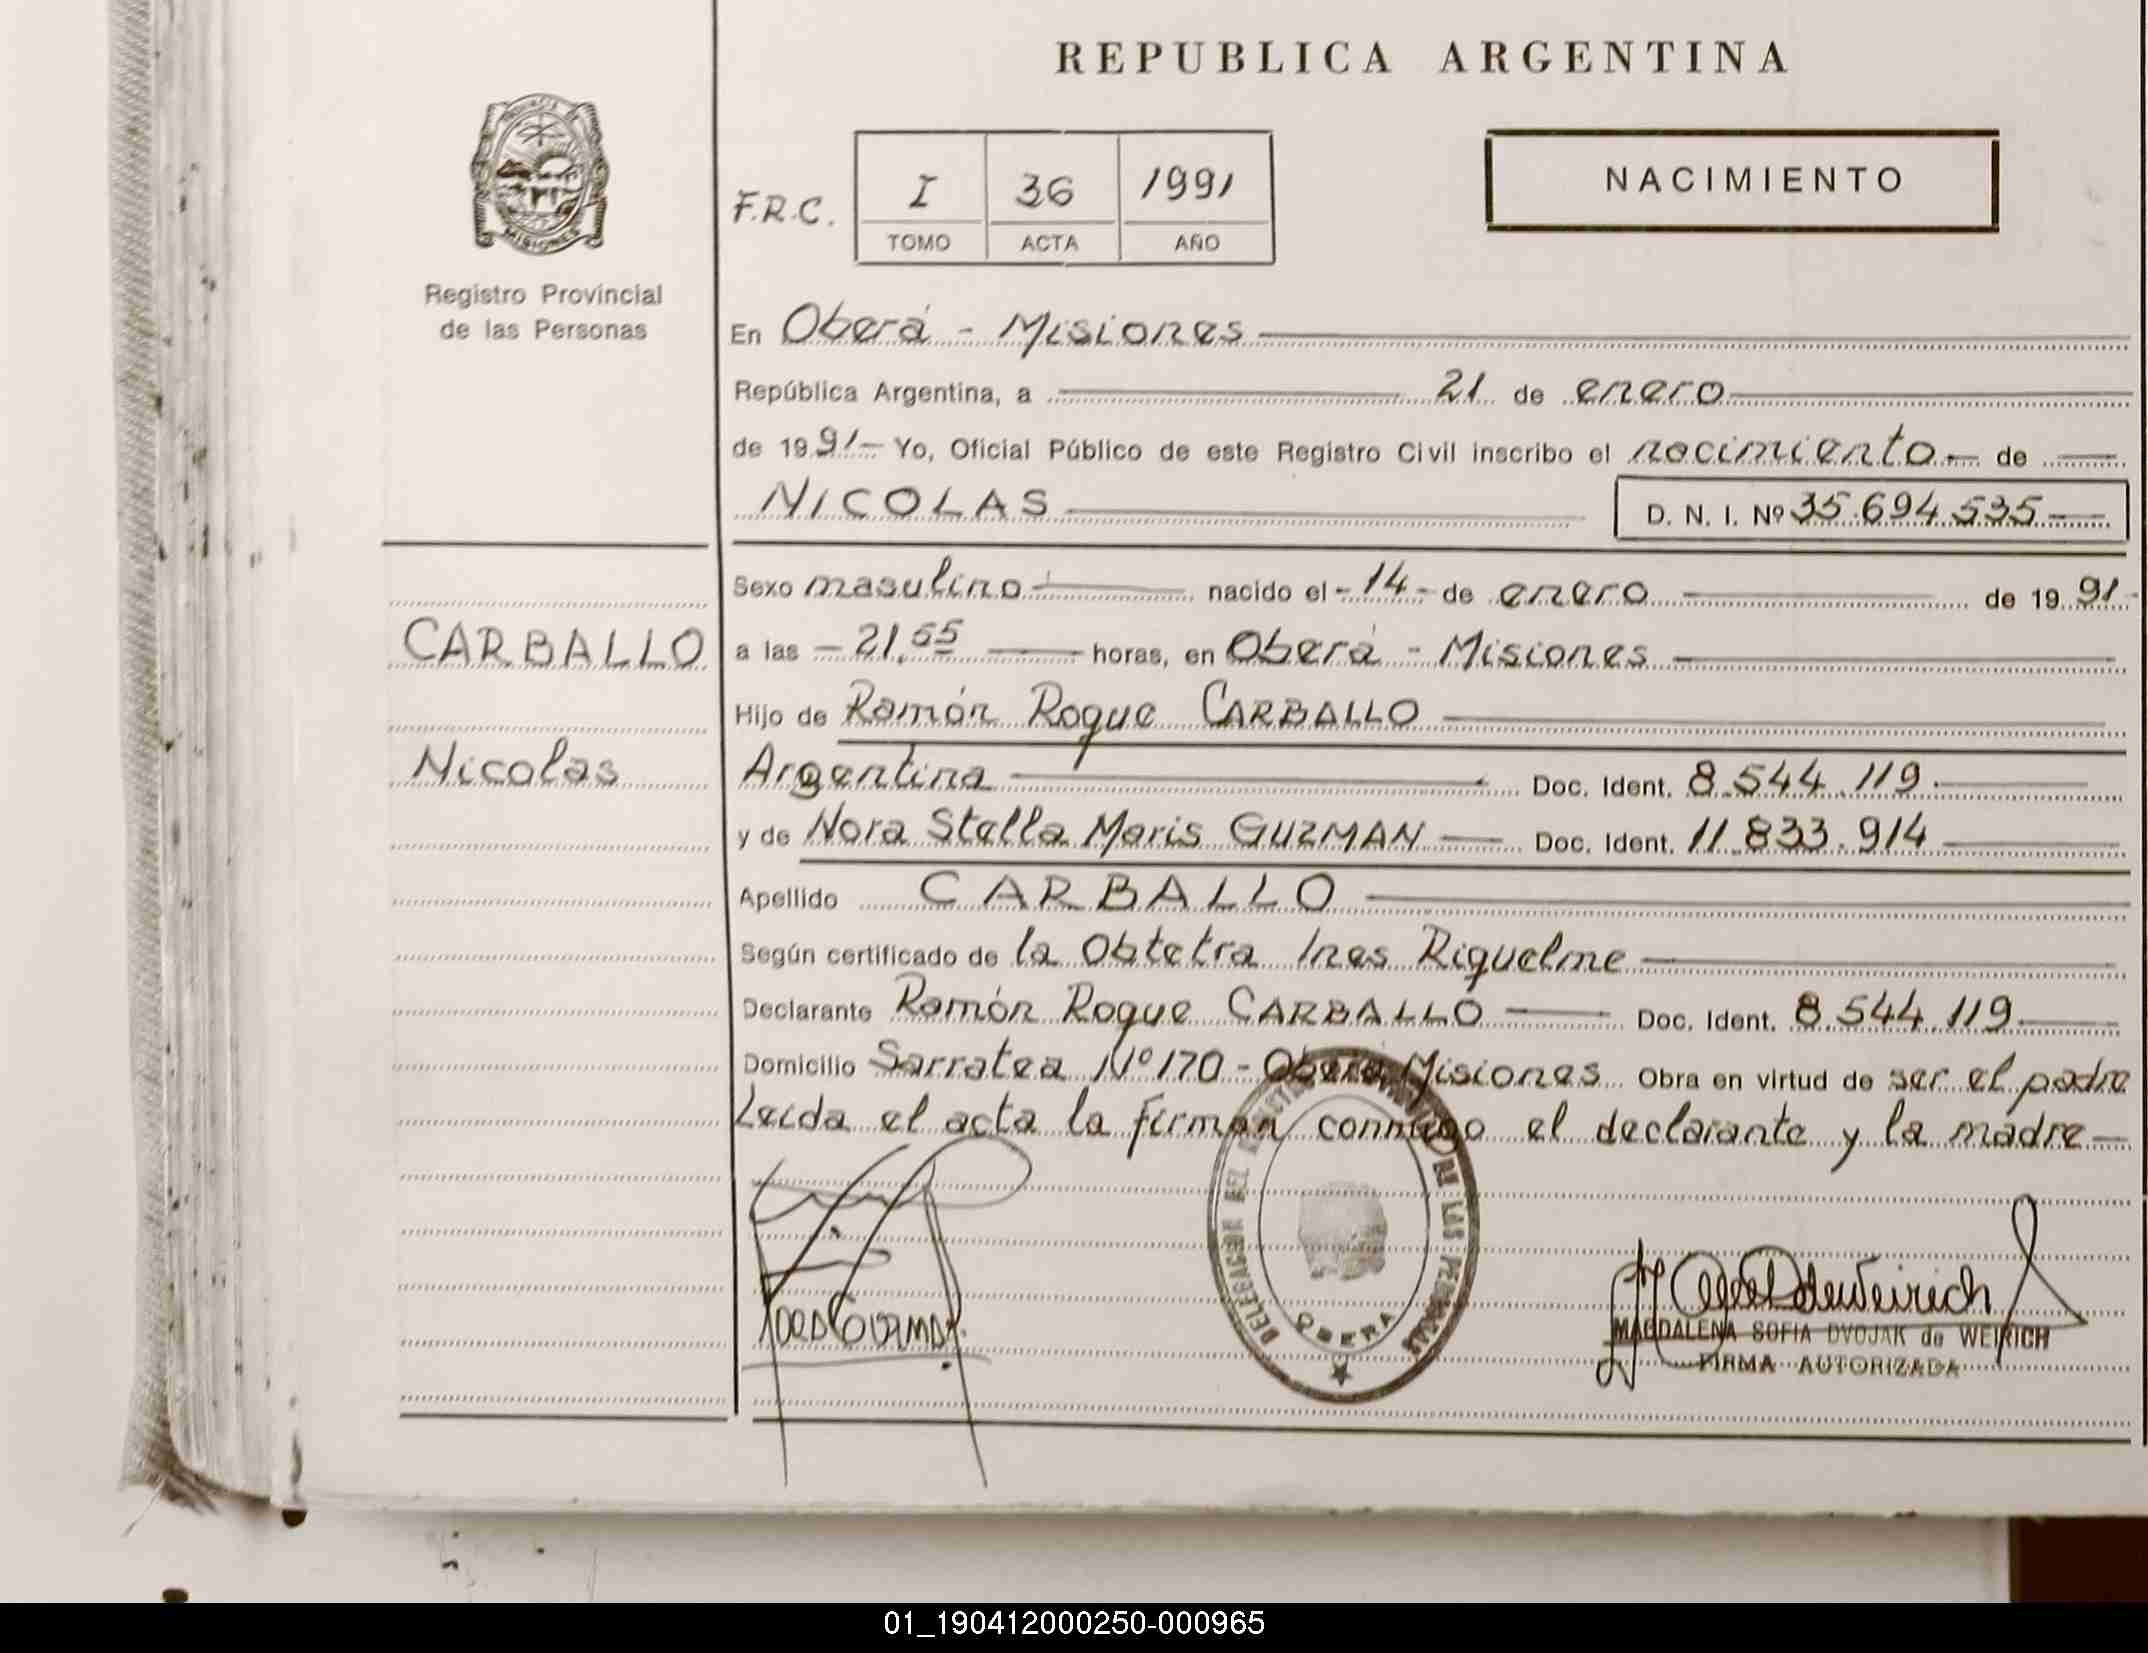 REPUBLICA ARGENTINA
PROVINCIA DE
MISIONES
Registro Provincial
de las Personas
F.R.C.
I 36 1991
TOMO ACTA AÑO
NACIMIENTO
En Oberá - Misiones
República Argentina, a 21 de enero
de 1991- Yo, Oficial Público de este Registro Civil inscribo el nacimiento de
NICOLAS D. N. I. Nº 35.694.535
Sexo masulino nacido el - 14 - de enero de 19 91-
CARBALLO
a las - 21,55 horas, en Oberá - Misiones
Hijo de Ramón Roque CARBALLO
Nicolas
Argentina Doc. Ident. 8.544.119
y de Nora Stella Maris GUZMAN Doc. Ident. 11.833.914
Apellido CARBALLO
Según certificado de la Obtetra Ines Riquelme
Declarante Ramón Roque CARBALLO Doc. Ident. 8.544.119
Domicilio Sarratea Nº 170 - Oberá Misiones Obra en virtud de ser el padre
Leida el acta la firman conmigo el declarante y la madre
DELEGACION DEL DE LAS PERSONAS
OBERA
MAGDALENA SOFIA DVOJAK de WEIRICH
FIRMA AUTORIZADA
01_190412000250-000965